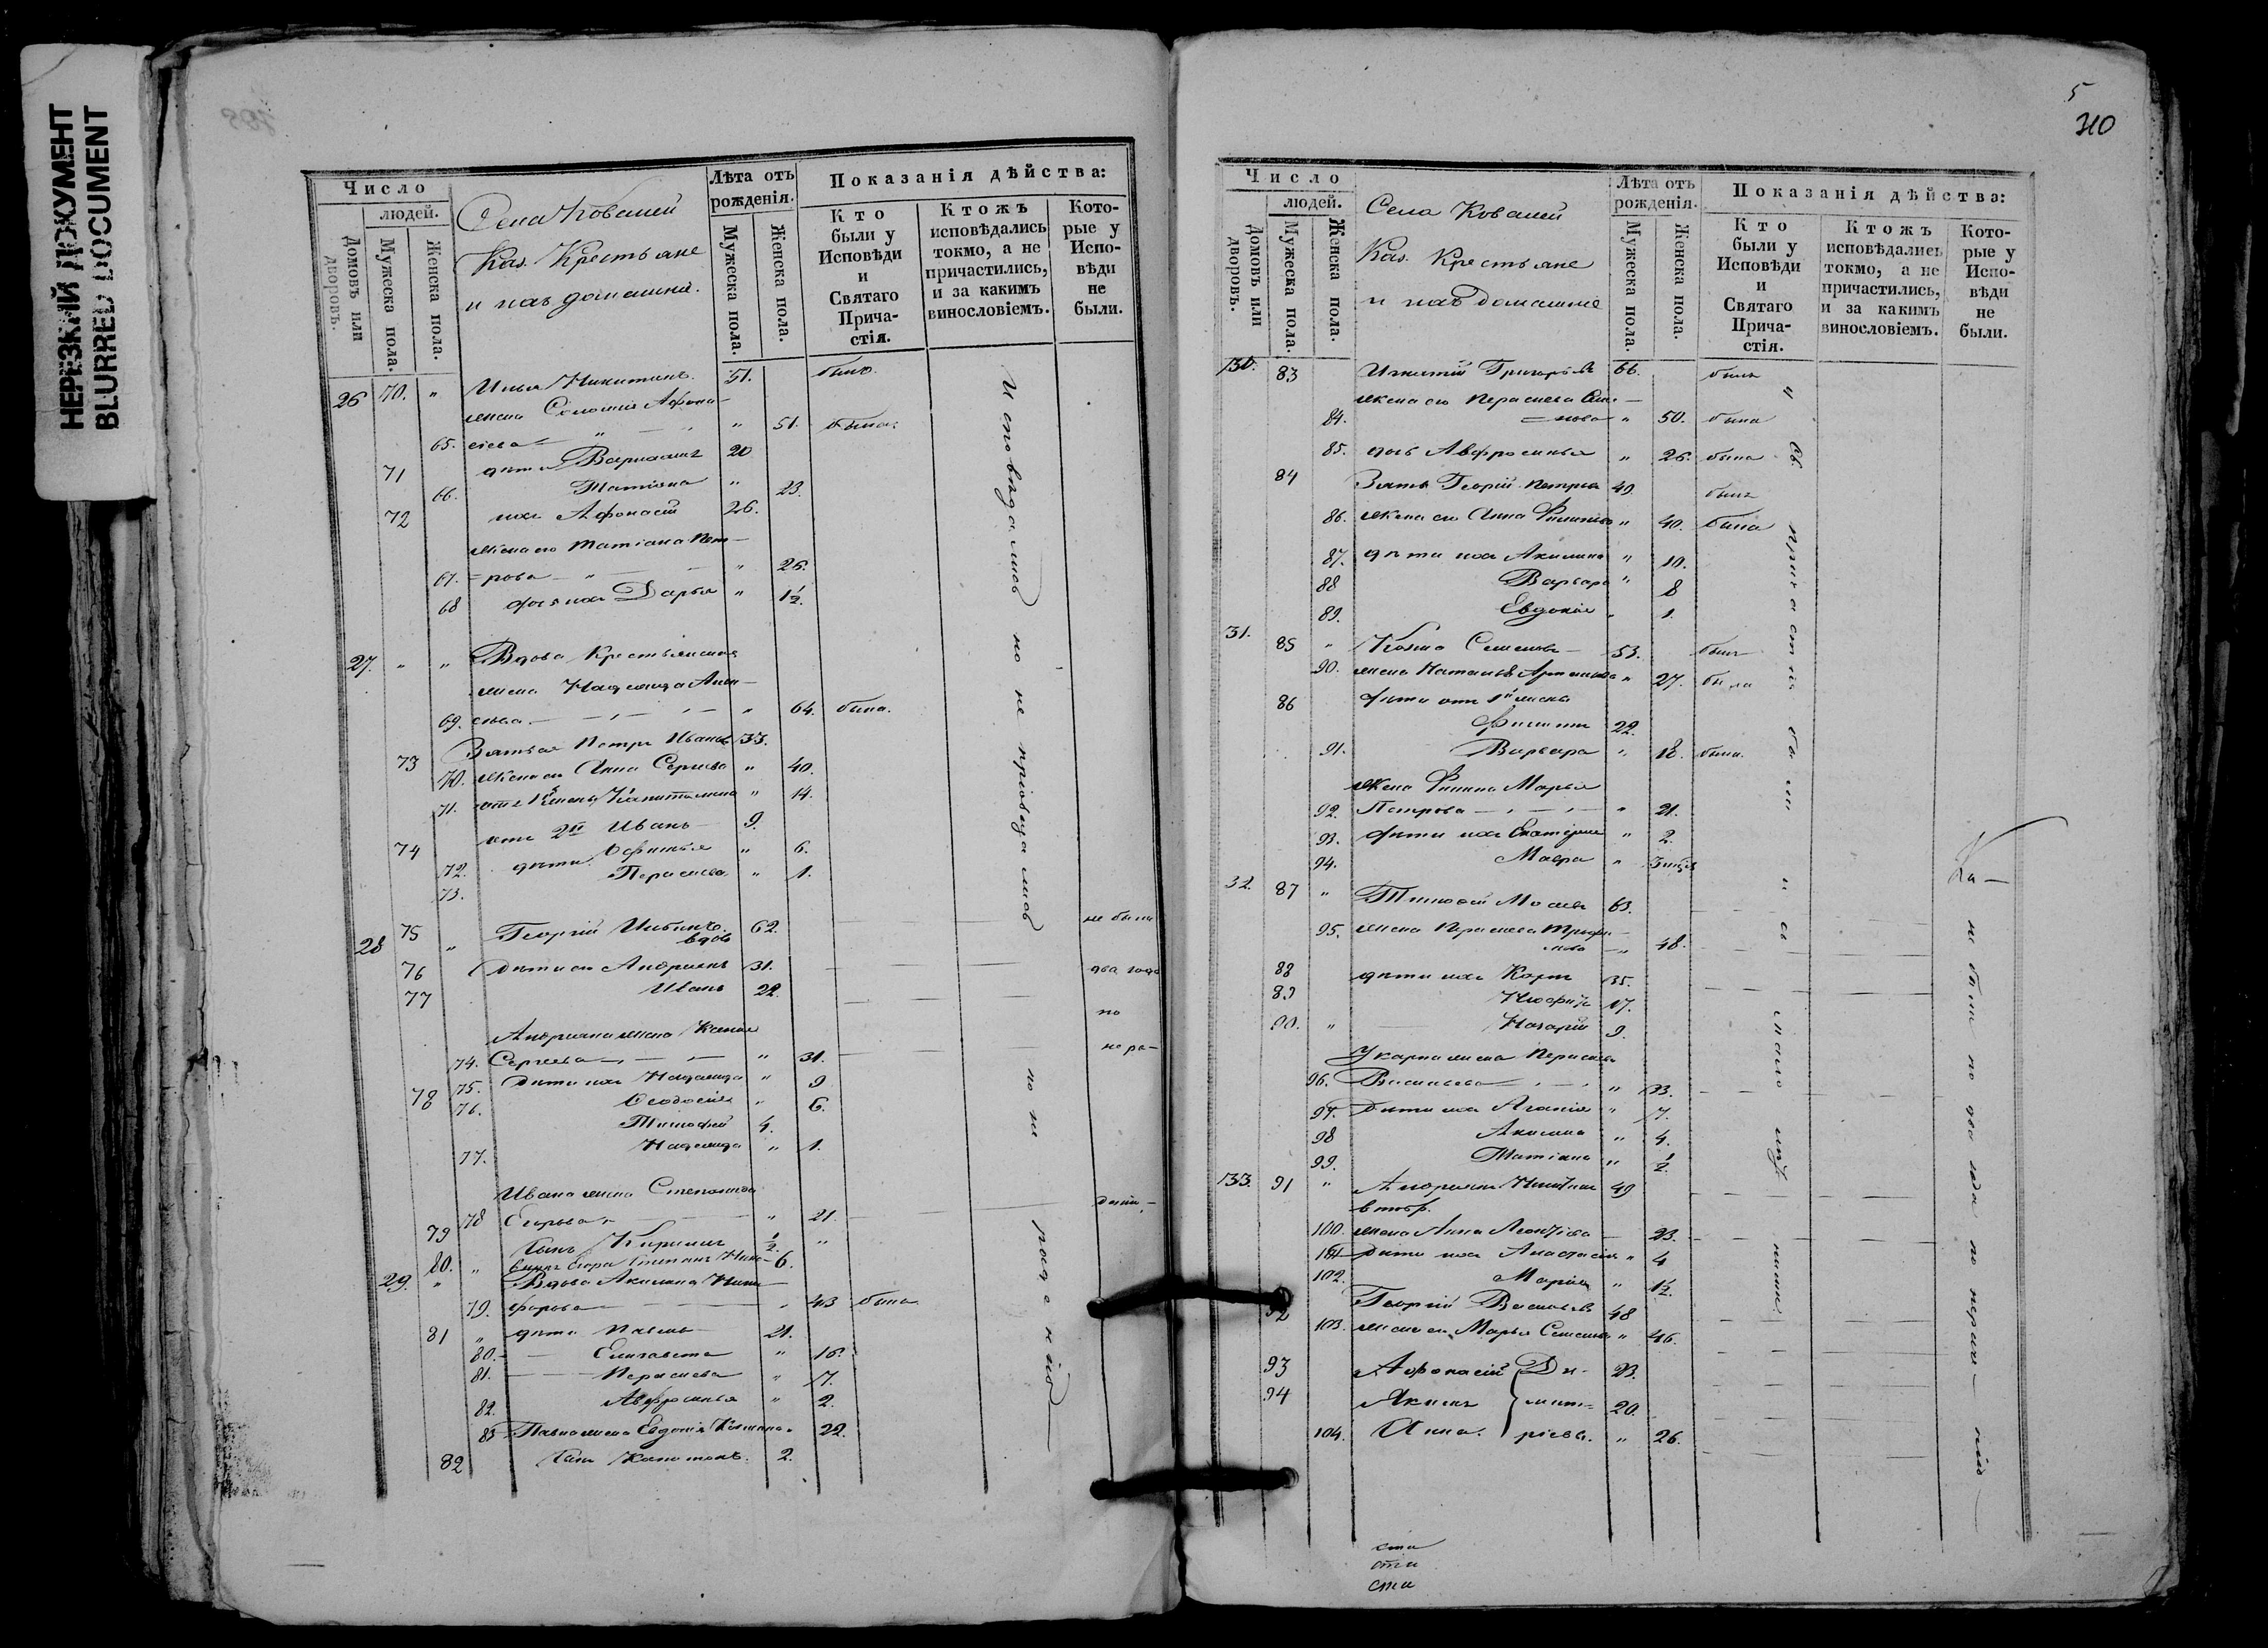 НЕРЕЗКИЙ ДОКУМЕНТ
BLURRED DOCUMENT
Число
людей.
Домовъ или дворовъ.
Мужеска пола.
Женска пола.
Села Ковалей
Каз. Крестьяне
и ихъ домашніе.
Лѣта отъ рожденія.
Мужеска пола.
Женска пола.
Показанія дѣйства:
Кто были у Исповѣди и Святаго Причастія.
Ктожъ исповѣдались токмо, а не причастились, и за какимъ винословіемъ.
Которые у Исповѣди не были.
26 70. " Илья Никитинъ. 51. былъ.
жена Соломія Афона-
65. сіева " " 51. была.
71 дѣти Варлаамъ 20
66. Татіана " 23.
72 ихъ Афонасій 26.
жена его Татіана Пет-
67. =рова " " 26.
68 дочь ихъ Дарья " 1½.
27. " " Вдова Крестьянская
жена Надежда
69. " 64. была.
73 Зять ея Петръ Ивановъ 33.
70. жена его Анна Сергѣева " 40.
71. отъ 1й жены Капитолина " 14.
74 отъ 2й Иванъ 9.
72. дѣти " 6.
73. Параскева " 1.
28 75 " Георгій 62. не были
вдовъ
76 Дѣти его Андріянъ 31. два года
77 Иванъ 22. по
Андріяна жена Ксенія
74. Сергѣева " 31. нера-
75. Дѣти ихъ Надежда " 9
78 76. Ѳеодосія " 6.
Тимофей 4.
77. Надежда " 1.
Ивана жена Степанида
78 Егорова " 21. дѣнію
79 Сынъ Кириллъ ½. "
80. " 6.
29. " Вдова Акилина Ники-
79. форова " 43 была
81 " дѣти Павелъ 21.
80. Елизавета " 16.
81. Параскева " 7.
82. Авфросинья " 2.
83 Павла жена Евдокія " 22.
82 Сынъ Капитонъ. 2.
Исповѣдались но не
по не
5
310
Число
людей.
Домовъ или дворовъ.
Мужеска пола.
Женска пола.
Села Ковалей
Каз. Крестьяне
и ихъ домашніе
Лѣта отъ рожденія.
Мужеска пола.
Женска пола.
Показанія дѣйства:
Кто были у Исповѣди и Святаго Причастія.
Ктожъ исповѣдались токмо, а не причастились, и за какимъ винословіемъ.
Которые у Исповѣди не были.
30. 83 Игнатій Григорьевъ 66. былъ
жена его Параскева Сем-
84. =нова " 50. была
85. дочь Авфросинья " 26. была
84 Зять Георгій Петровъ 49. былъ
86. жена его Анна Филипова " 40. была
87. дѣти ихъ Акилина " 10.
88 Варвара " 8
89. Евдокія " 1.
31. 85 " Козма Семеновъ 53. былъ
90. жена Наталья " 27. была
86 дѣти отъ 1й жены
Филиппъ 22.
91. Варвара " 18. была.
жена Филипа Марья
92. Петрова " 21.
93. дѣти ихъ Екатерина " 2.
94. Мавра "
32. 87 " Тимофей 63.
95. жена Параскева Трофи-
мова " 48.
88 дѣти ихъ Карпъ 35.
89 17.
90. " Назарій 9.
У карпа жена Параскева
96. Васильева " 33.
97. Дѣти ихъ Агапія " 7.
98 Акилина " 4.
99. Татіана " ½.
33. 91 " Андріянъ Никитинъ 49
вторбр.
100. жена Анна Леонтіева 23.
101 Дѣти ихъ Анастасія " 4
102. Марія " 1½.
92 Георгій Васильевъ 48
103. жена его Марья Семенова " 46.
93 Афонасій Ди- 23.
94 Акимъ мит- 20.
104. Анна. ріевы. " 26.
и Св. причастія были
не были по два года по нераденію
сти
сти
сти